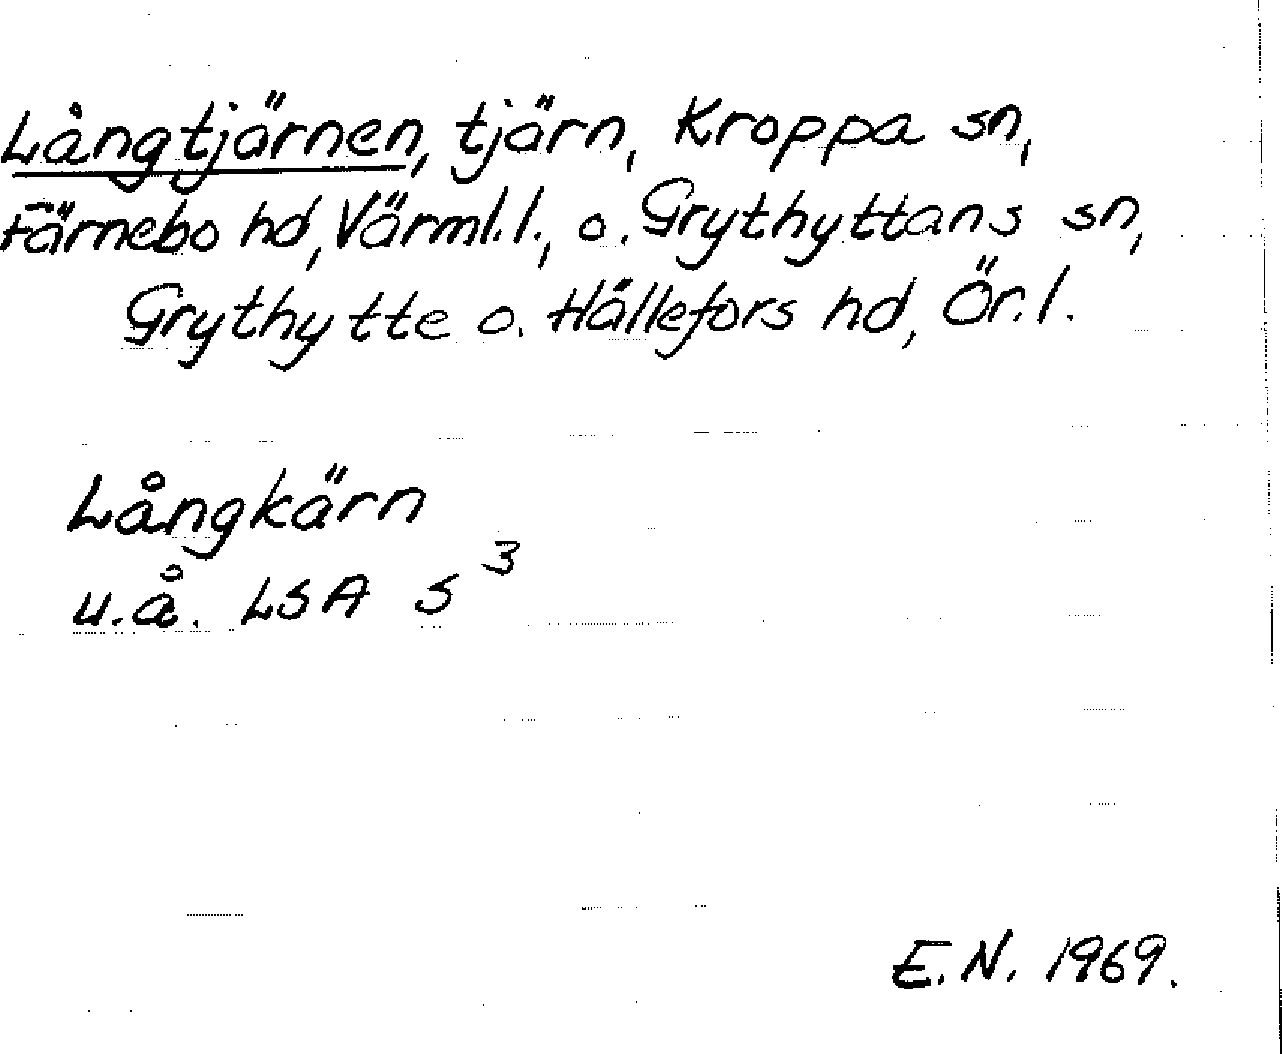 Långtjärnen, tjärn, Kroppa sn,
Färnebo hd, Värml.l., o. Grythyttans sn,
Grythytte o. Hällefors hd, Ör.l.
Långkärn
u.å. LSA S³
E.N. 1969.